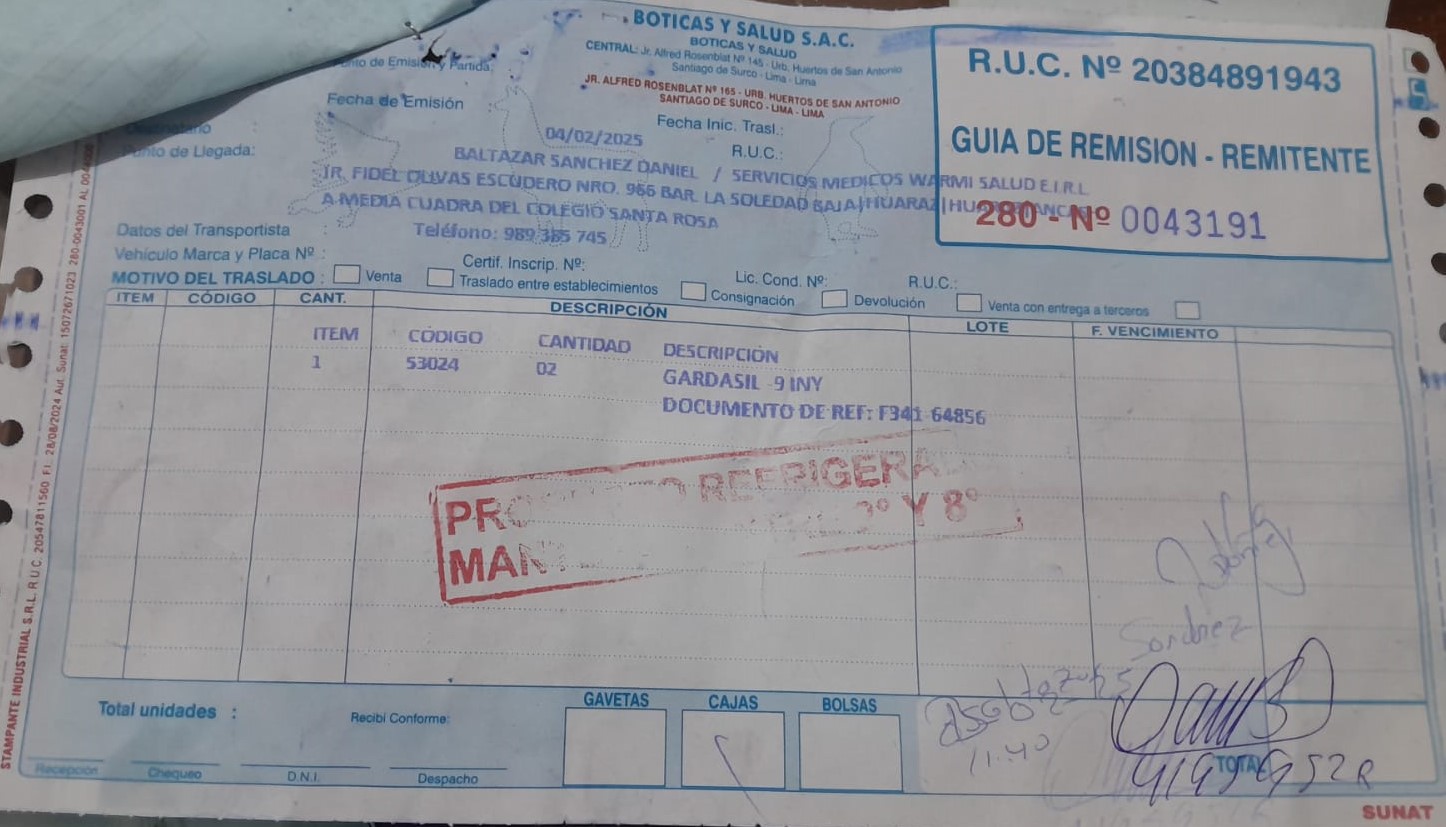 BOTICAS Y SALUD S.A.C.
BOTICAS Y SALUD
CENTRAL: Jr. Alfred Rosenblat Nº 145 - Urb. Huertos de San Antonio
Santiago de Surco - Lima - Lima
JR. ALFRED ROSENBLAT Nº 165 - URB. HUERTOS DE SAN ANTONIO
SANTIAGO DE SURCO - LIMA - LIMA
R.U.C. Nº 20384891943
GUIA DE REMISION - REMITENTE
280 - Nº 0043191
Punto de Emisión y Partida:
Fecha de Emisión :
04/02/2025
Fecha Inic. Trasl.:
Destinatario :
BALTAZAR SANCHEZ DANIEL / SERVICIOS MEDICOS WARMI SALUD E.I.R.L
R.U.C.:
Punto de Llegada:
JR. FIDEL OLIVAS ESCUDERO NRO. 966 BAR. LA SOLEDAD BAJA|HUARAZ|
A MEDIA CUADRA DEL COLEGIO SANTA ROSA
Teléfono: 989 365 745
Datos del Transportista :
Vehículo Marca y Placa Nº :
Certif. Inscrip. Nº:
Lic. Cond. Nº:
R.U.C.:
MOTIVO DEL TRASLADO : Venta Traslado entre establecimientos Consignación Devolución Venta con entrega a terceros
ITEM CÓDIGO CANT. DESCRIPCIÓN LOTE F. VENCIMIENTO
ITEM CÓDIGO CANTIDAD DESCRIPCIÓN
1 53024 02 GARDASIL -9 INY
DOCUMENTO DE REF: F341 64856
REFRIGERA
Y 8°
Sanchez
11:40
Total unidades :
Recibí Conforme:
GAVETAS CAJAS BOLSAS
TOTAL
Recepción Chequeo D.N.I. Despacho
SUNAT
STAMPANTE INDUSTRIAL S.R.L. R.U.C. 20547811560 F.I. 28/08/2024 Aut. Sunat: 15072671023 280-0043001 AL